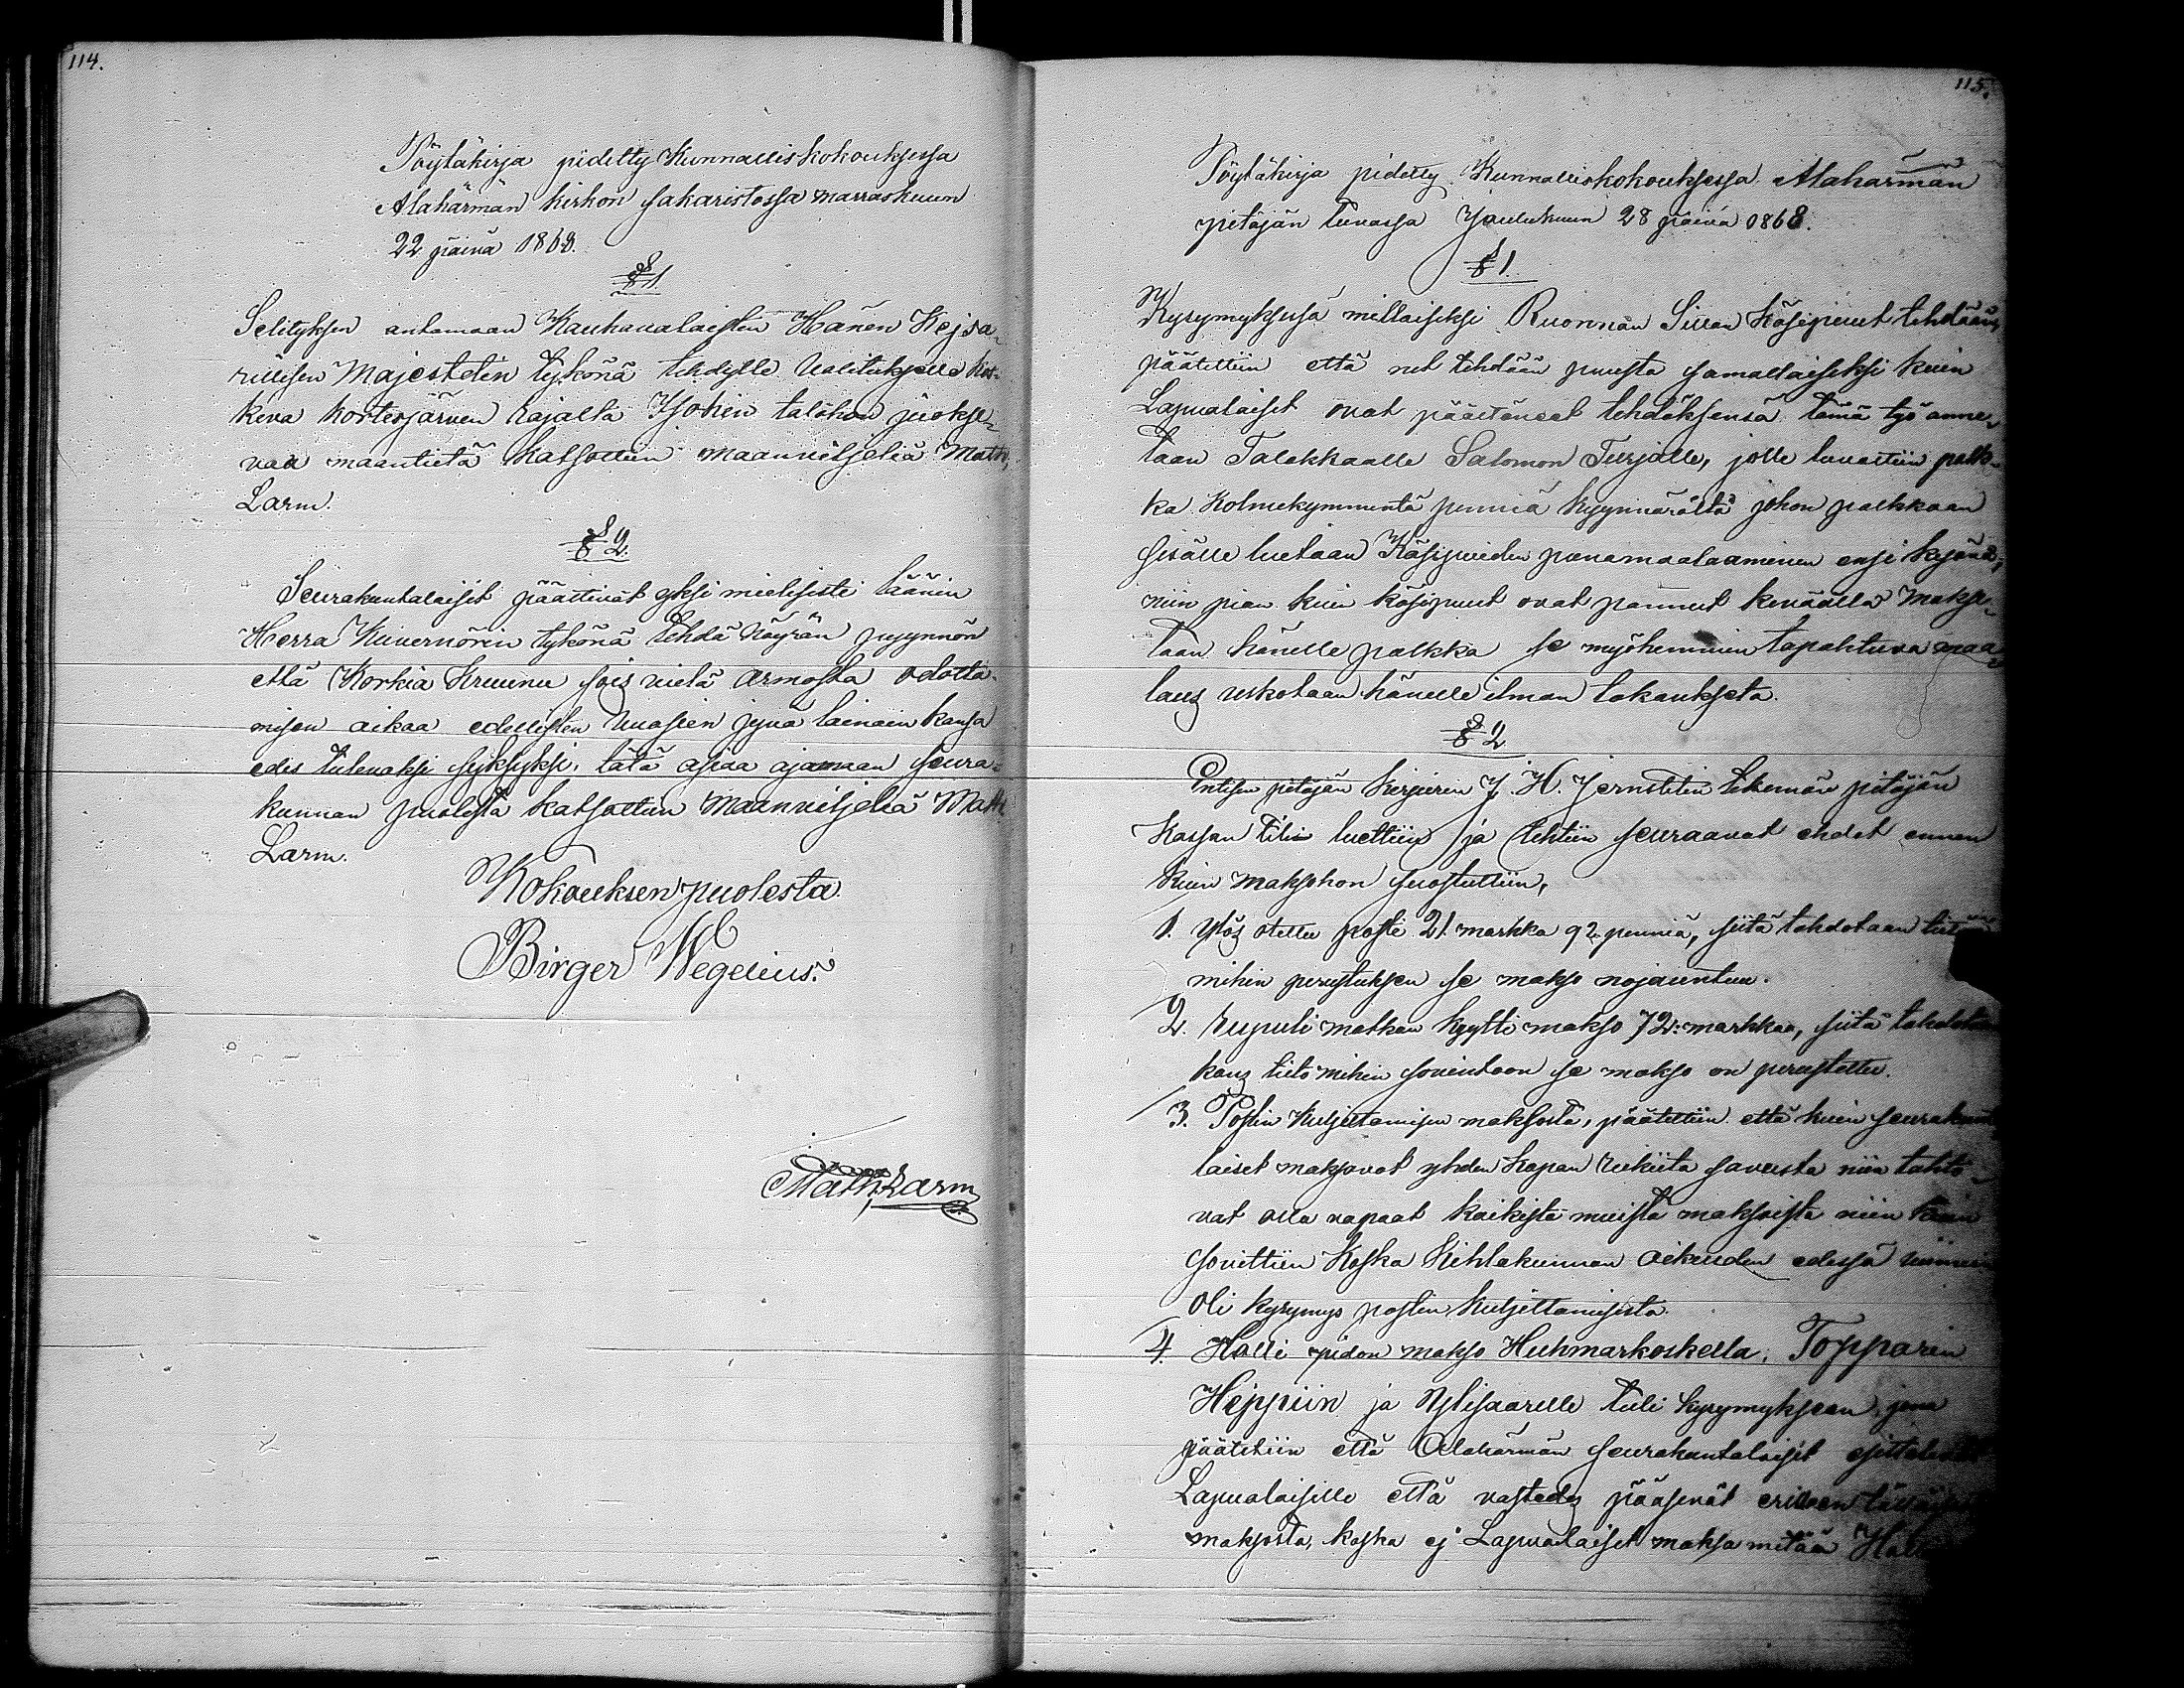 114.
Pöytäkirja pidetty Kunnalliskokouksessa
Alahärmän kirkon sakaristossa marraskuun
22 päivä 1868.
§ 1
Selityksen antamaan Kauhavalaisten Hänen Kejsa-
rillisen Majestetin tykönä tehdylle valitukselle kos-
keva kortesjärven rajalta Ysohin talohon juokse-
vaa maantietä katsottiin maanviljeliä Matts,
Larm.
§ 2.
Seurakuntalaiset päättivät yksi mielisesti läänin
Herra Kuvernörin tykönä tehdä nöyrän pyynnön
että Korkia Kruunu sois vielä armosta odotta-
misen aikaa edellisten vuosien jyvä lainain kansa
edes tulevaksi syksyksi, tätä asiaa ajamaan seura-
kunnan puolesta katsottiin Maanviljeliä Matts
Larm.
Kokouksen puolesta.
Birger Wegelius.
Matts Larm
115.
Pöytäkirja pidetty Kunnalliskokouksessa Alahärmän
pitäjän tuvassa Joulukuun 28 päivä 1868.
§ 1.
Kysymyksessä millaiseksi Ruonnan Sillan Käsipuut tehdään,
päätettiin että net tehdään puusta samallaiseksi kuin
Lapualaiset ovat päättäneet tehdäksensä tämä työ anne-
taan Talokkaalle Salomon Turjalle, jolle luvattiin palk-
ka Kolmekymmentä penniä kyynärältä johon palkkaan
sisälle luetaan Käsipuiden punamaalaaminen ensi kesänä,
niin pian kuin käsipuut ovat pannut keväällä makse-
taan hänelle palkka se myöhemmin tapahtuva maa-
laus uskotaan hänelle ilman takaukseta.
§ 2
Entisen pitäjän kirjurin J. H. Jernstetin tekemän pitäjän
Kassan tilin luettiin ja tehtiin seuraavat ehdet ennen
kuin maksohon suostuttiin,
1. Ylös otettu posti 21 markka 92 penniä, siitä tahdotaan
mihin perustuksen se makso nojauntuu.
2. rupuli matkan kyytti makso 72: markkaa, siitä tahdotaan
kans tieto mihin sovintoon se makso on perustettu.
3. Postin Kuljettamisen maksosta, päätettiin että kuin seurakunta
laiset maksavat yhden kapan rukiita savusta niin tahto-
vat olla vapaat kaikista muista maksoista niin kuin
sovittiin Koska Kihlakunnan oikeuden edessä viimein
oli kysymys postin kuljettamisesta.
4. Halli pidon makso Huhmarkoskella, Topparin
Heppiin ja Ylisaarelle tuli kysymykseen, jona
päätettiin että Alahärmän seurakuntalaiset
Lapualaisille että vastedes pääsevät erilleen
maksosta, koska ej Lapualaiset maksa mitään